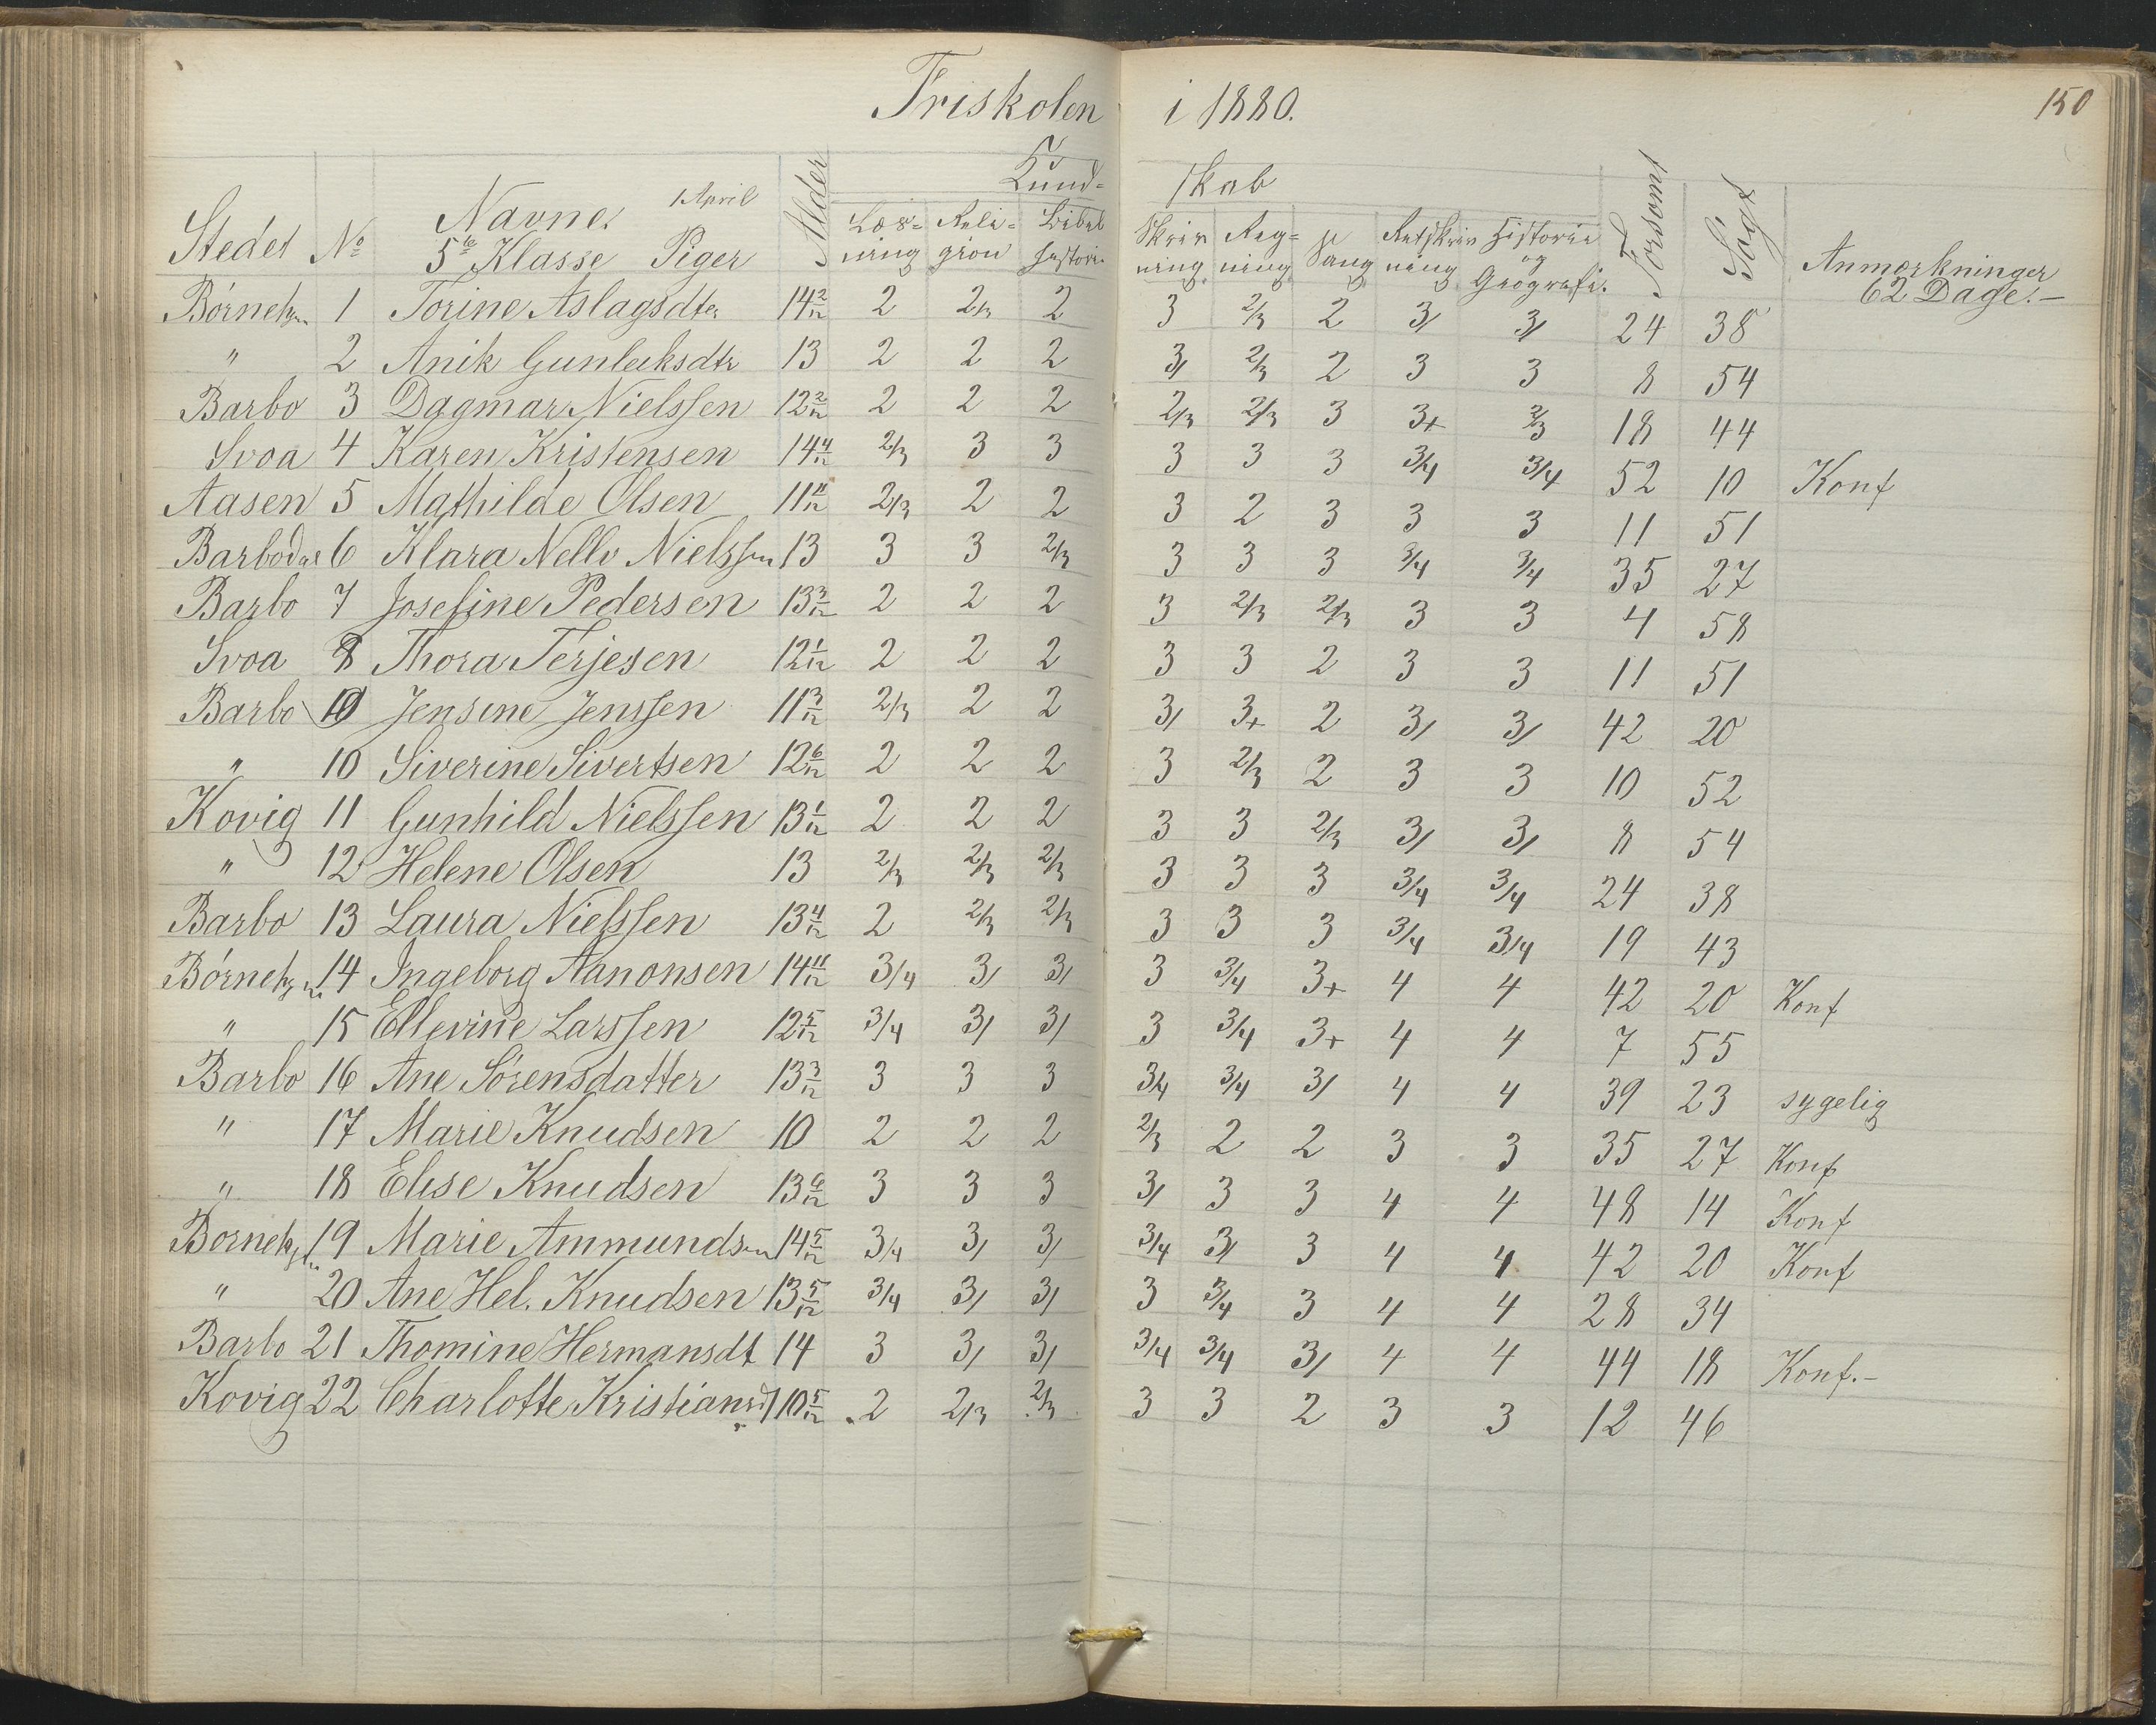 Friskolen i 1880. 150
Kund= skab
Stedet No Navne. 1 April Alder Læs= Reli= Bibel Skriv Reg= Sang Retskriv Historie Forsømt Søgt Anmærkninger
5te Klasse Piger ning gion historie ning ning ning og Geografi. 62 Dage.—
1 Torine Aslagsdter 14 2/12 2 2/3 2 3 2/3 2 3/ 3/ 24 38
" 2 Anik Gunleiksdtr 13 2 2 2 3/ 2/3 2 3 3 8 54
Barbo 3 Dagmar Nielssen 12 2/12 2 2 2 2/3 2/3 3 3+ 2/3 18 44
Svoa 4 Karen Kristensen 14 4/12 2/3 3 3 3 3 3 3/4 3/4 52 10 Konf
Aasen 5 Mathilde Olsen 11 11/12 2/3 2 2 3 2 3 3 3 11 51
6 Klara Nelly Nielssen 13 3 3 2/3 3 3 3 3/4 3/4 35 27
Barbo 7 Josefine Pedersen 13 3/12 2 2 2 3 2/3 2/3 3 3 4 58
Svoa 8 Thora Terjesen 12 1/12 2 2 2 3 3 2 3 3 11 51
Barbo Jensine Jenssen 11 3/12 2/3 2 2 3/ 3+ 2 3/ 3/ 42 20
" 10 Siverine Sivertsen 12 6/12 2 2 2 3 2/3 2 3 3 10 52
Kovig 11 Gunhild Nielssen 13 1/12 2 2 2 3 3 2/3 3/ 3/ 8 54
" 12 Helene Olsen 13 2/3 2/3 2/3 3 3 3 3/4 3/4 24 38
Barbo 13 Laura Nielssen 13 4/12 2 2/3 2/3 3 3 3 3/4 3/4 19 43
14 Ingeborg Aanonsen 14 11/12 3/4 3/ 3/ 3 3/4 3+ 4 4 42 20 Konf
" 15 Ellevine Larssen 12 5/12 3/4 3/ 3/ 3 3/4 3+ 4 4 7 55
Barbo 16 Ane Sørensdatter 13 3/12 3 3 3 3/4 3/4 3/ 4 4 39 23 sygelig
" 17 Marie Knudsen 10 2 2 2 2/3 2 2 3 3 35 27 Konf
" 18 Elise Knudsen 13 6/12 3 3 3 3/ 3 3 4 4 48 14 Konf
19 Marie Ammundsen 14 5/12 3/4 3/ 3/ 3/4 3/ 3 4 4 42 20 Konf
" 20 Ane Hel. Knudsen 13 5/12 3/4 3/ 3/ 3 3/4 3 4 4 28 34
Barbo 21 Thomine Hermansdt 14 3 3/ 3/ 3/4 3/4 3/ 4 4 44 18 Konf.—
Kovig 22 Charlotte Kristiansdt 10 5/12 2 2/3 2/3 3 3 2 3 3 12 46